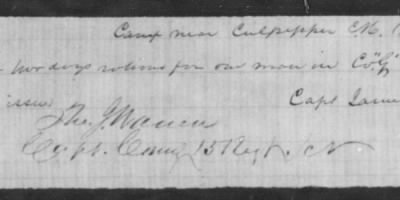 Camp near Culpepper C.H.
two days rations for one man in Co "G"
issue Capt Jame
Tho. J. Warren
Capt. Comg 15 Regt.